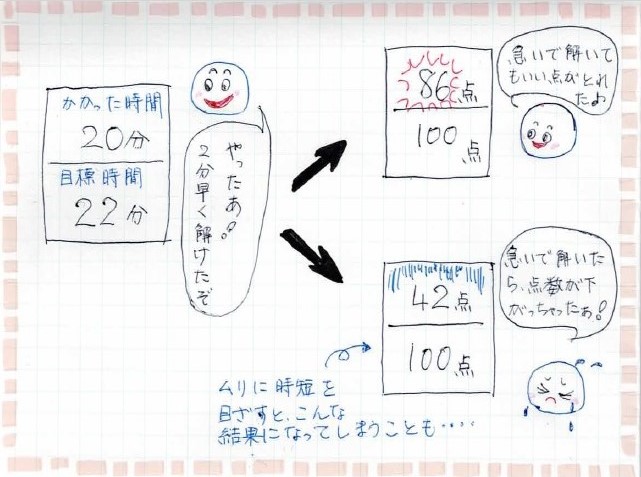 かかった時間
20分
目標時間
22分
やったあ!
2分早く解けたぞ
86点
100点
急いで解いて
もいい点がとれ
たよ
42点
100点
急いで解いた
ら、点数が下
がっちゃったぁ!
ムリに時短を
目ざすと、こんな
結果になってしまうことも・・・・